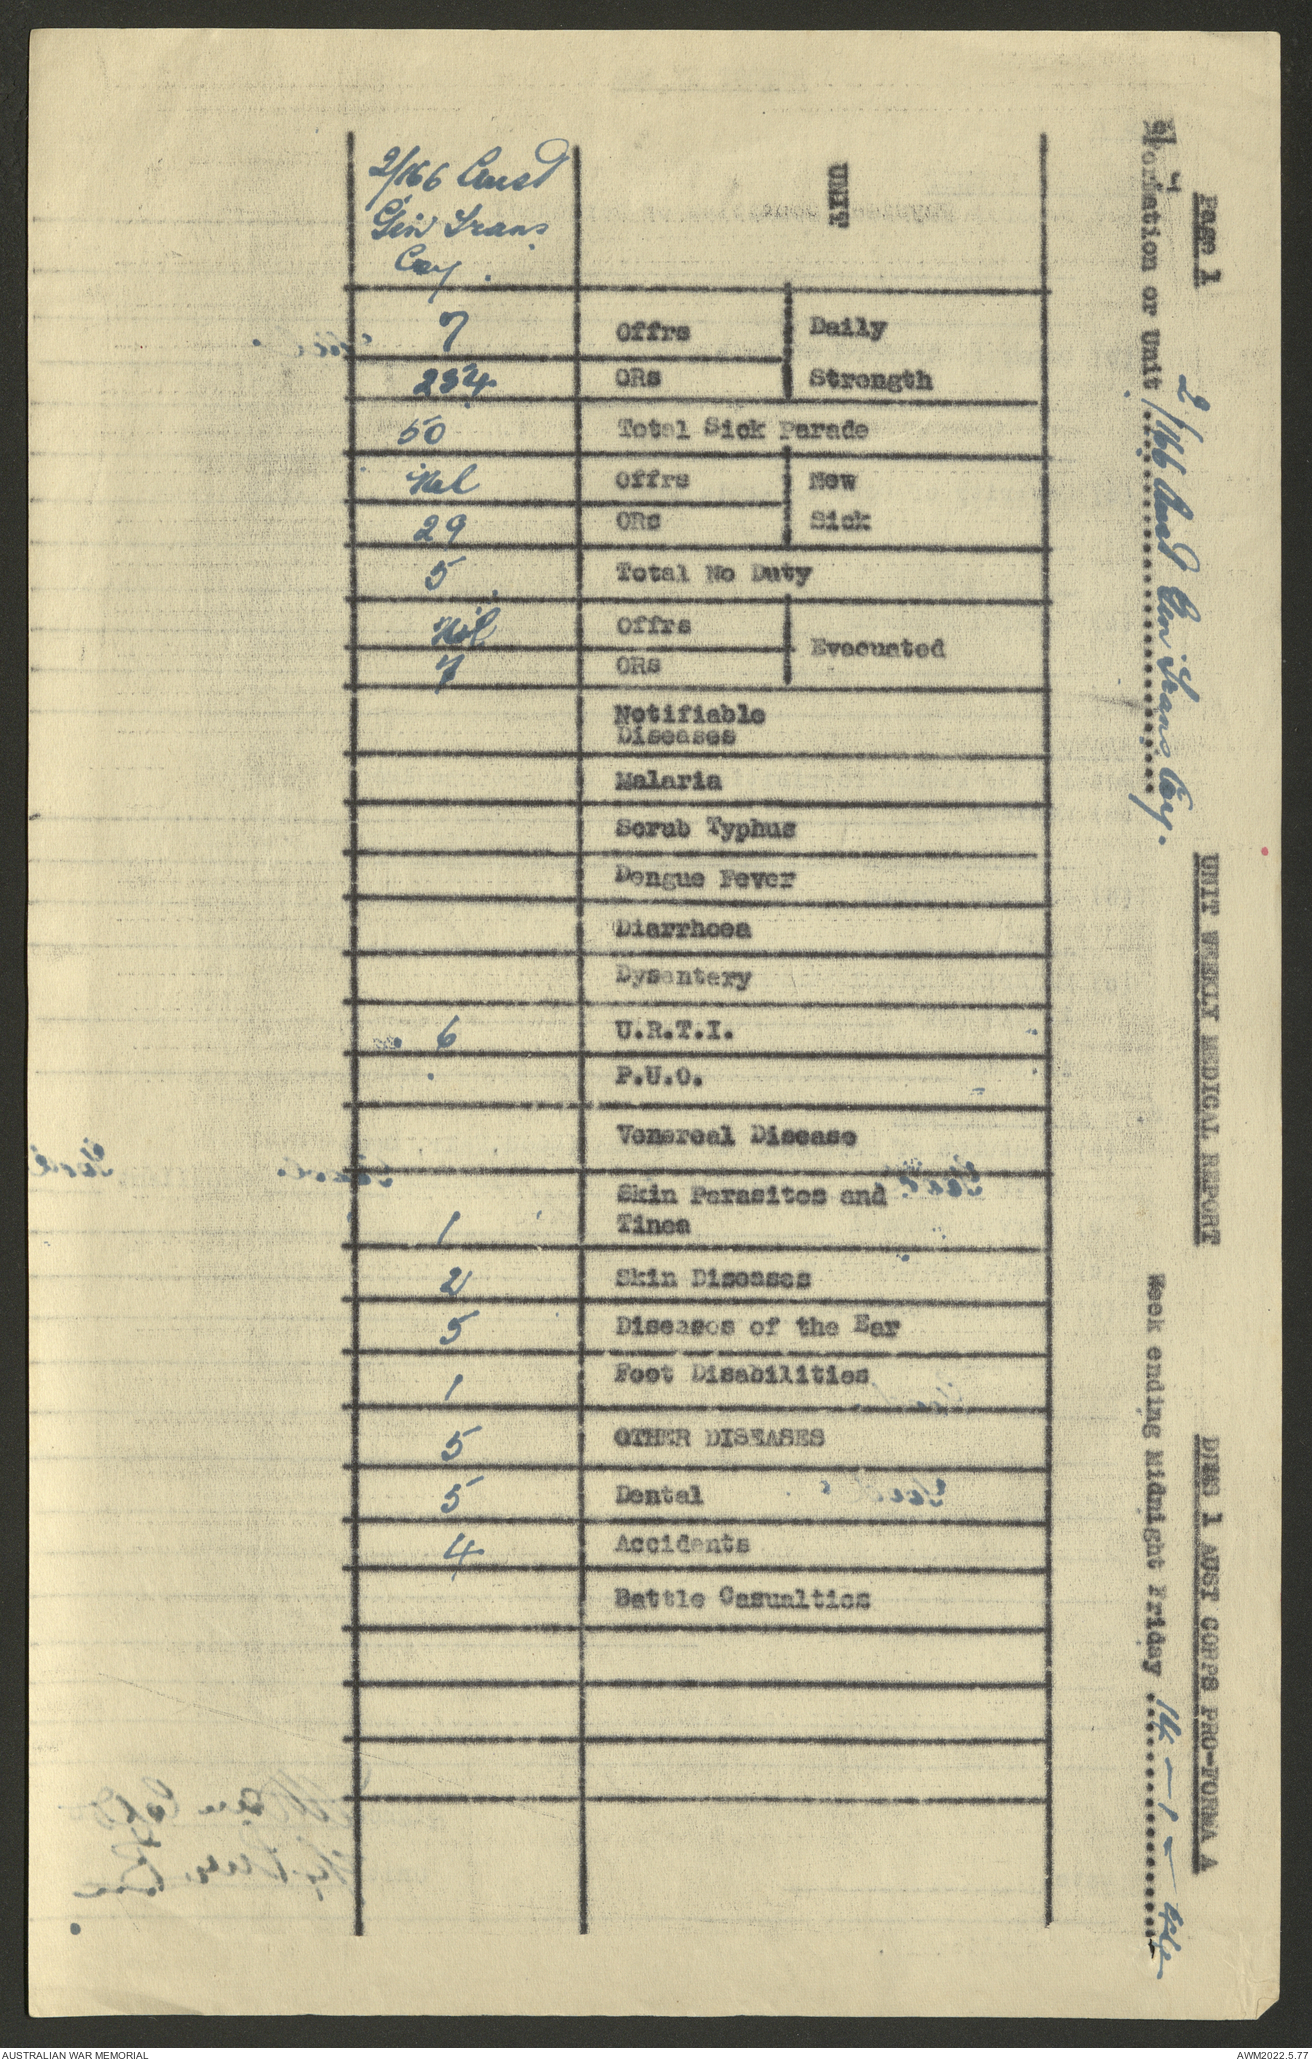 Page 1
UNIT WEEKLY MEDICAL REPORT
DDMS 1 AUST CORPS PRO-FORMA A
Formation or Unit 2/166 Aust Gen Trans Coy.
Week ending Midnight Friday 14-1-44
UNIT 2/166 Aust
Gen Trans
Coy.
Daily Strength Offrs 7
ORs 234
Total Sick Parade 50
New Sick Offrs Nil
ORs 29
Total No Duty 5
Evacuated Offrs Nil
ORs 7
Notifiable
Diseases
Malaria
Scrub Typhus
Dengue Fever
Diarrhoea
Dysentery
U.R.T.I. 6
P.U.O.
Venereal Disease
Skin Parasites and
Tinea 1
Skin Diseases 2
Diseases of the Ear 5
Foot Disabilities 1
OTHER DISEASES 5
Dental 5
Accidents 4
Battle Casualties
AUSTRALIAN WAR MEMORIAL
AWM2022.5.77